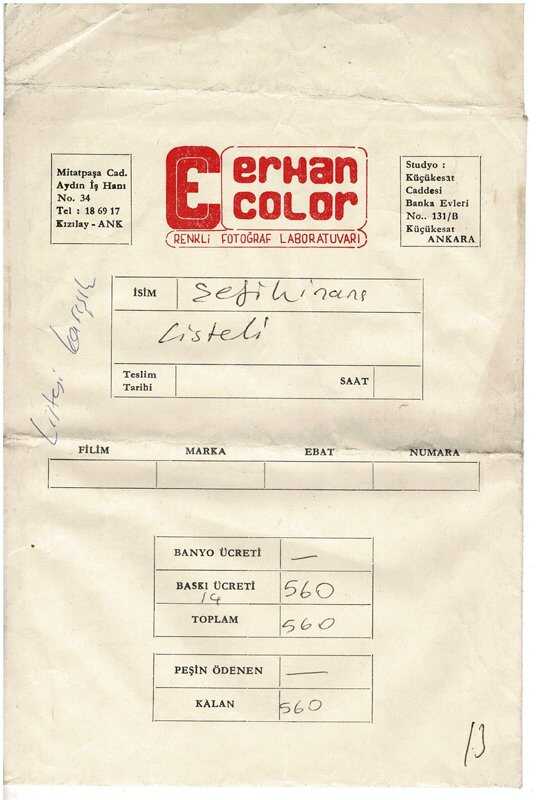 Mitatpaşa Cad.
Aydın İş Hanı
No. 34
Tel : 18 69 17
Kızılay - ANK
E erhan
color
RENKLİ FOTOĞRAF LABORATUVARI
Studyo :
Küçükesat
Caddesi
Banka Evleri
No.. 131/B
Küçükesat
ANKARA
İSİM
Listeli
Teslim
Tarihi
SAAT
Listesi karışık
FİLİM MARKA EBAT NUMARA
BANYO ÜCRETİ —
BASKI ÜCRETİ 560
14
TOPLAM 560
PEŞİN ÖDENEN —
KALAN 560
13